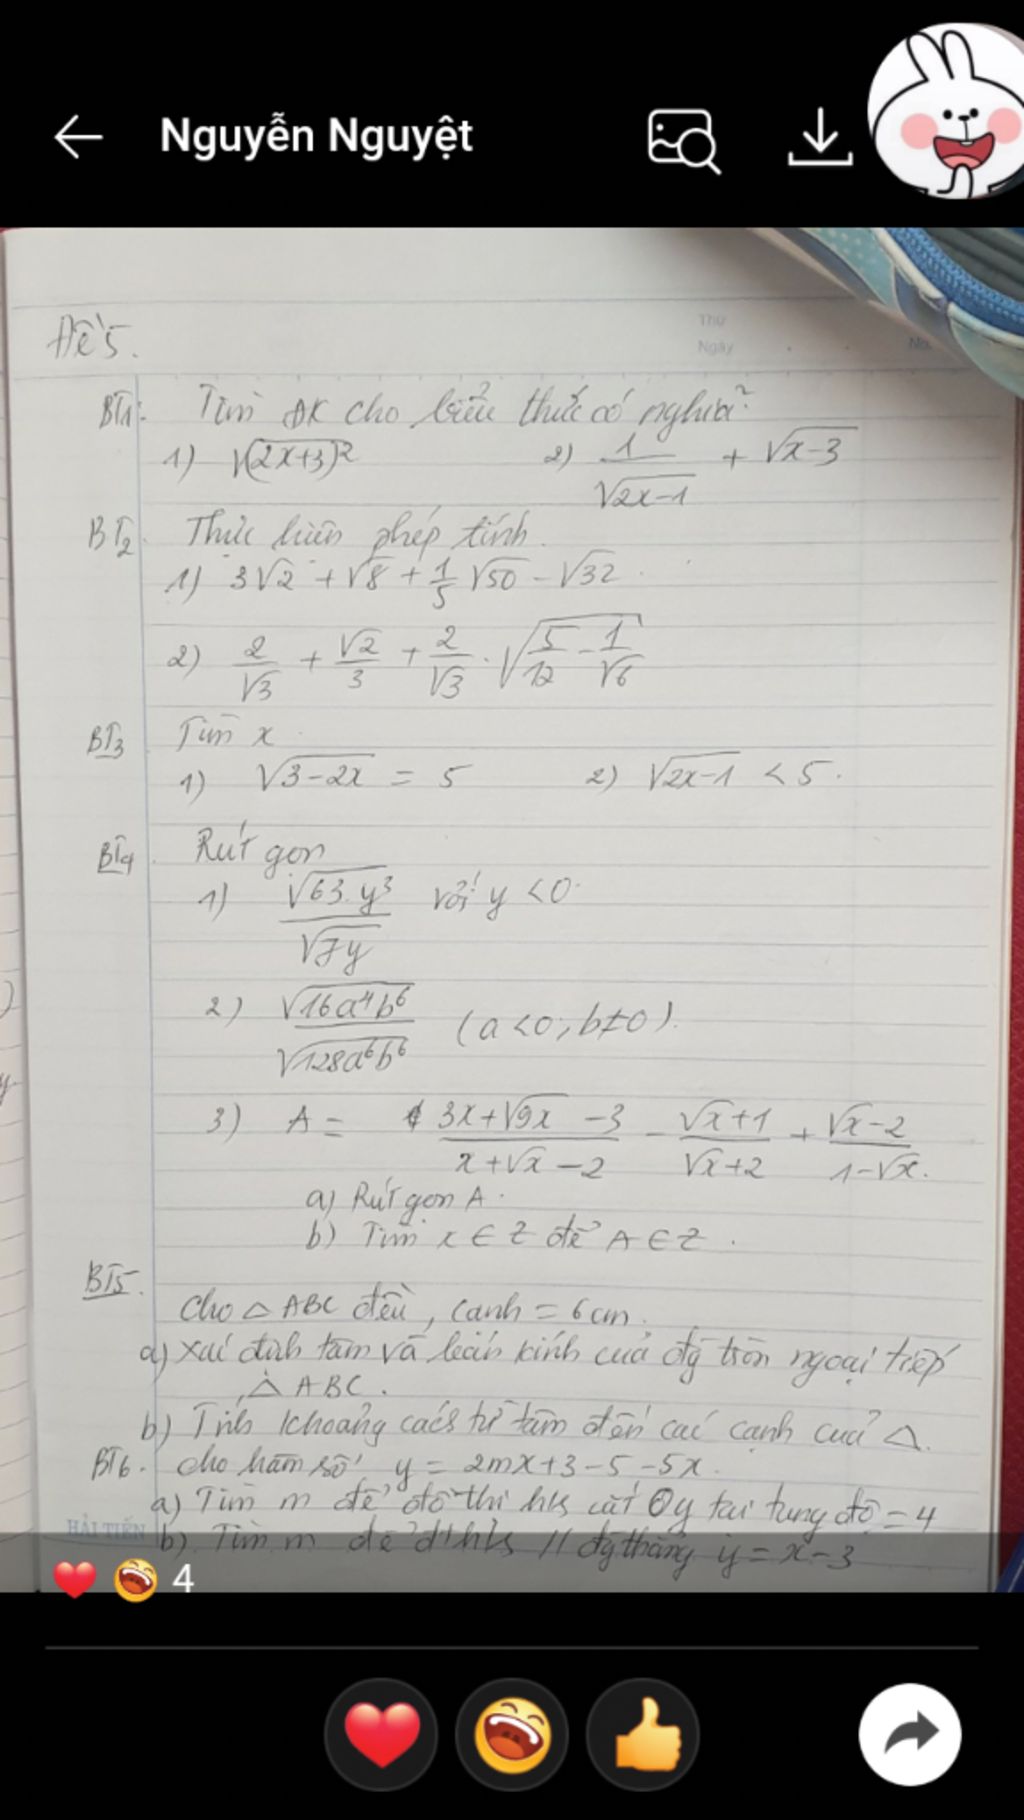 Nguyễn Nguyệt
Thứ
Ngày
No.
Đề 5.
BT1: Tìm ĐK cho biểu thức có nghĩa:
1) √(2x+3)² 2) 1/√2x-1 + √x-3
BT2 Thực hiện phép tính.
1) 3√2 + √8 + 1/5 √50 - √32
2) 2/√3 + √2/3 + 2/√3 . √(5/12 - 1/√6)
BT3 Tìm x
1) √3-2x = 5 2) √2x-1 < 5.
BT4. Rút gọn
1) √63.y³/√7y với y < 0.
2) √16a⁴b⁶/√128a⁶b⁶ (a < 0; b ≠ 0).
3) A = 3x+√9x -3/x+√x-2 - √x+1/√x+2 + √x-2/1-√x.
a) Rút gọn A.
b) Tìm x ∈ Z để A ∈ Z.
BT5. Cho △ ABC đều, cạnh = 6 cm.
a) Xác định tâm và bán kính của đg tròn ngoại tiếp
△ ABC.
b) Tính khoảng cách từ tâm đến các cạnh của △.
BT6. Cho hàm số y = 2mx+3-5-5x.
a) Tìm m để đồ thị hs cắt Oy tại tung độ = 4
HẢI TIẾN
b) Tìm m để đths // đg thẳng y = x-3
4